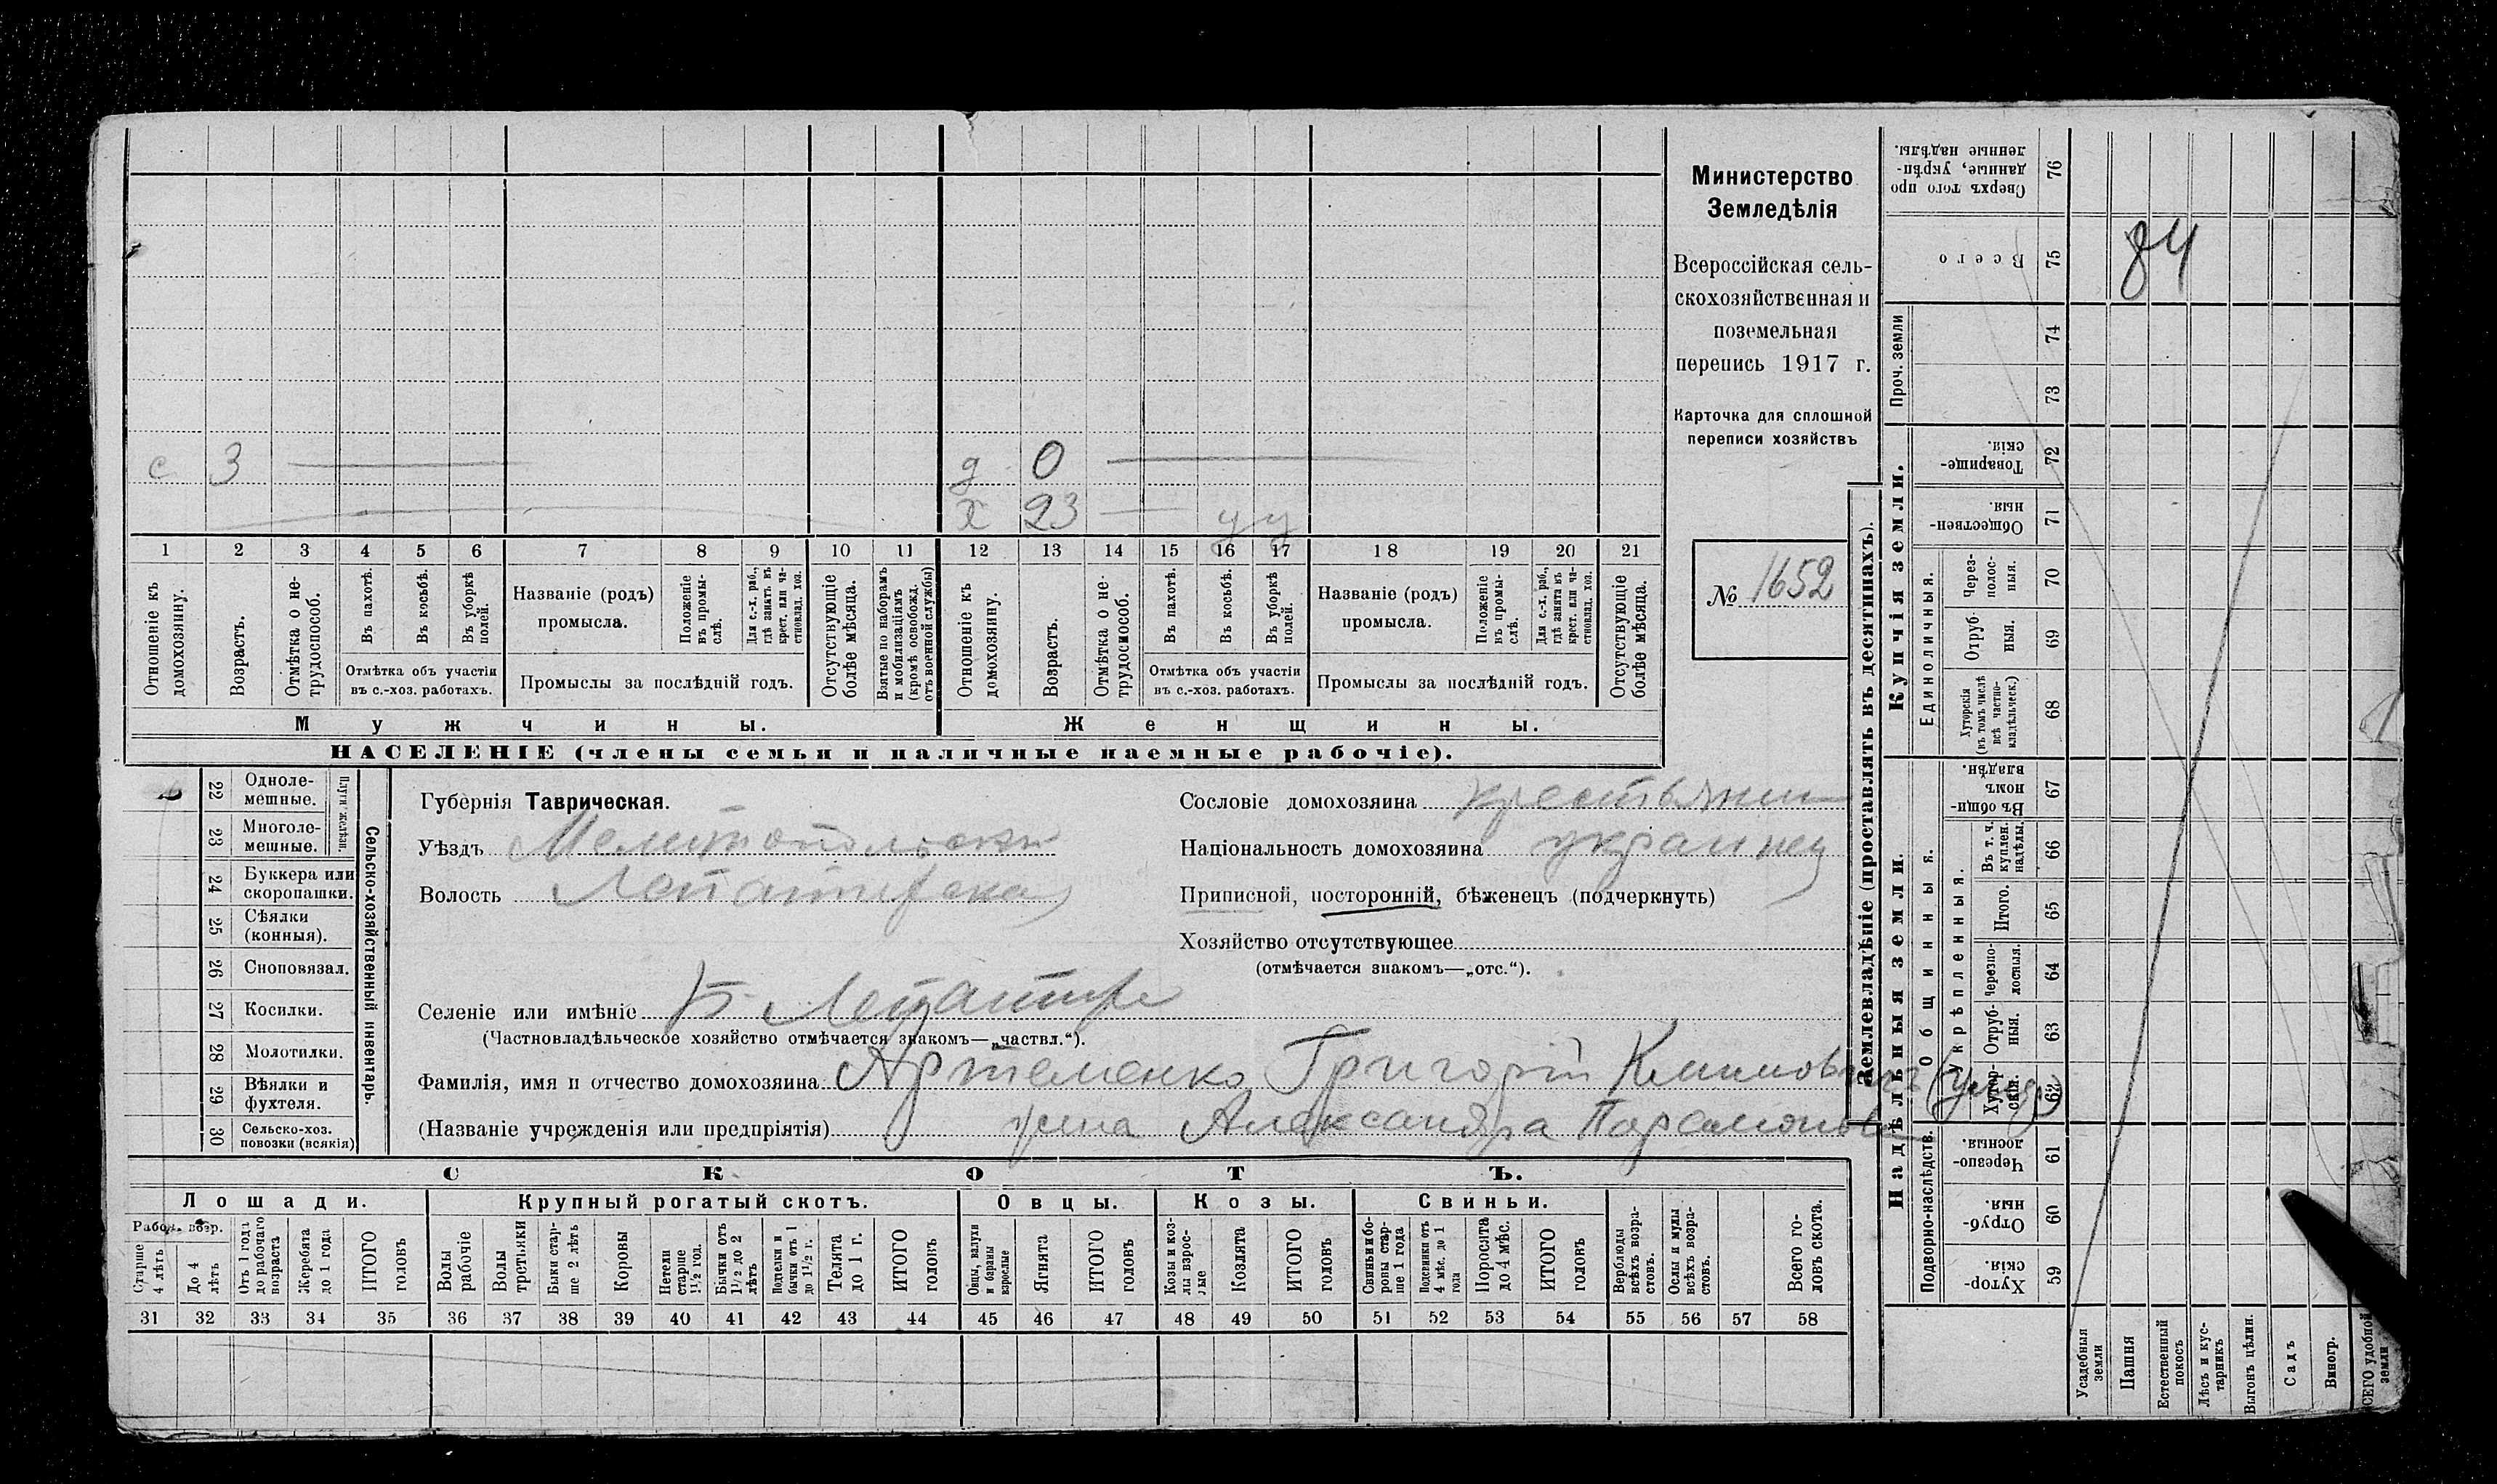 Министерство
Земледѣлія
Всероссійская сель-
скохозяйственная и
поземельная
перепись 1917 г.
Карточка для сплошной
переписи хозяйствъ
№ 1652
с 3
д 0
х 23 у у
1 2 3 4 5 6 7 8 9 10 11 12 13 14 15 16 17 18 19 20 21
Отношеніе къ домохозяину.
Возрастъ.
Отмѣтка о не-трудоспособ.
Въ пахотѣ.
Въ косьбѣ.
Въ уборкѣ полей.
Отмѣтка объ участіи
въ с.-хоз. работахъ.
Названіе (родъ)
промысла.
Положеніе въ промы-слѣ.
Для с.-х. раб., гдѣ занятъ въ крест. или ча-стновлад. хоз.
Промыслы за послѣдній годъ.
Отсутствующіе болѣе мѣсяца.
Взятые по наборамъ и мобилизаціямъ (кромѣ освобожд. отъ военной службы)
Отношеніе къ домохозяину.
Возрастъ.
Отмѣтка о не-трудоспособ.
Въ пахотѣ.
Въ косьбѣ.
Въ уборкѣ полей.
Отмѣтка объ участіи
въ с.-хоз. работахъ.
Названіе (родъ)
промысла.
Положеніе въ промы-слѣ.
Для с.-х. раб., гдѣ занята въ крест. или ча-стновлад. хоз.
Промыслы за послѣдній годъ.
Отсутствующіе болѣе мѣсяца.
Мужчины.
Женщины.
НАСЕЛЕНІЕ (члены семьи и наличные наемные рабочіе).
22 Одноле-мешные.
23 Многоле-мешные.
Плуги желѣзн.
24 Буккера или скоропашки.
25 Сѣялки (конныя).
26 Сноповязал.
27 Косилки.
28 Молотилки.
29 Вѣялки и фухтеля.
30 Сельско-хоз. повозки (всякія)
Сельско-хозяйственный инвентарь.
Губернія Таврическая.
Уѣздъ Мелитопольски
Волость Лепатиська
Селеніе или имѣніе Б. Лепатиха
(Частновладѣльческое хозяйство отмѣчается знакомъ—„частвл.“).
Фамилія, имя и отчество домохозяина Артеменко Григорій Климович (умер)
(Названіе учрежденія или предпріятія) жена Александра Парамонова
Сословіе домохозяина крестьянин
Національность домохозяина украинец
Приписной, посторонній, бѣженецъ (подчеркнуть)
Хозяйство отсутствующее
(отмѣчается знакомъ—„отс.“).
СКОТЪ.
Лошади.
Крупный рогатый скотъ.
Овцы.
Козы.
Свиньи.
Рабоч. возр.
Старше 4 лѣтъ
До 4 лѣтъ
Отъ 1 года до рабочаго возраста
Жеребята до 1 года
ИТОГО головъ
Волы рабочіе
Волы третьяки
Быки стар-ше 2 лѣтъ
Коровы
Нетели старше 1½ год.
Бычки отъ 1½ до 2 лѣтъ
Подтелки и бычки отъ 1 до 1½ г.
Телята до 1 г.
ИТОГО головъ
Овцы, валухи и бараны взрослые
Ягнята
ИТОГО головъ
Козы и коз-лы взрос-лые
Козлята
ИТОГО головъ
Свиньи и бо-ровы стар-ше 1 года
Подсвинки отъ 4 мѣс. до 1 года
Поросята до 4 мѣс.
ИТОГО головъ
Верблюды всѣхъ возра-стовъ.
Ослы и мулы всѣхъ возра-стовъ.
Всего го-ловъ скота.
31 32 33 34 35 36 37 38 39 40 41 42 43 44 45 46 47 48 49 50 51 52 53 54 55 56 57 58
Землевладѣніе (проставлять въ десятинахъ).
Купчія земли.
Надѣльныя земли.
Сверхъ того про данные, укрѣп-ленные надѣлы. 76
Всего 75
84
Проч. земли 74 73
Товарище-скія. 72
Обществен-ныя 71
Единоличныя.
Через-полос-ныя. 70
Отруб-ныя. 69
Хуторскія (въ томъ числѣ всѣ частно-владѣльческ.) 68
Общинныя.
Въ общи-номъ владѣн. 67
Укрѣпленныя.
Въ т. ч. куплен. надѣлы. 66
Итого. 65
Черезпо-лосныя. 64
Отруб-ныя. 63
Хутор-скія. 62
Подворно-наслѣдств.
Черезпо-лосныя. 61
Отруб-ныя. 60
Хутор-скія. 59
Усадебныя земли
Пашня
Естественный покосъ
Лѣсъ и кус-тарникъ
Выгонъ цѣлин.
Садъ
Виногр.
СЕГО удобной земли